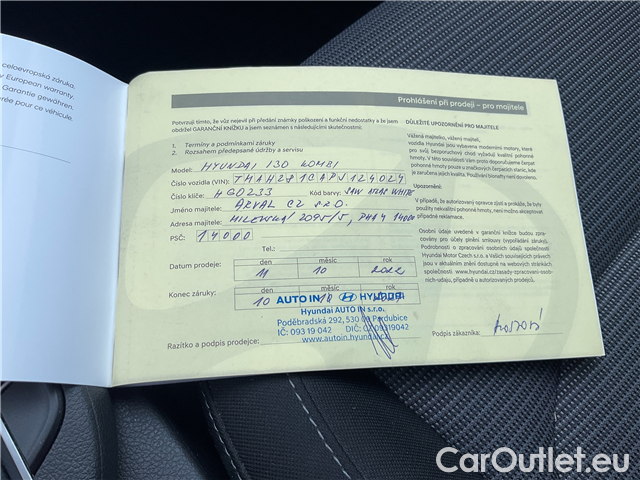 celoevropská záruka.
European warranty.
Garantie gewähren.
pour ce véhicule.
Prohlášení při prodeji – pro majitele
Potvrzuji tímto, že vůz nejeví při předání známky poškození a funkční nedostatky a že jsem
obdržel GARANČNÍ KNÍŽKU a jsem seznámen s následujícími skutečnostmi:
1. Termíny a podmínkami záruky
2. Rozsahem předepsané údržby a servisu
Model: HYUNDAI i30 KOMBI
Číslo vozidla (VIN): TMAH281CAPJ124024
Číslo klíče: HG0233 Kód barvy: SAW ATLAS WHITE
Jméno majitele: ARVAL CZ s.r.o.
Adresa majitele: MILEVSKÁ 2095/5, PHA 4 14000
PSČ: 14000
Tel.:
den měsíc rok
Datum prodeje: 11 10 2022
den měsíc rok
Konec záruky: 10 10
AUTO IN HYUNDAI
Hyundai AUTO IN s.r.o.
Poděbradská 292, 530 09 Pardubice
IČ: 093 19 042 DIČ: CZ 09319042
www.autoin.hyundai.cz
Razítko a podpis prodejce:
DŮLEŽITÉ UPOZORNĚNÍ PRO MAJITELE
Vážená majitelko, vážený majiteli,
vozidla Hyundai jsou vybavena moderními motory, které
pro svůj bezporuchový chod vyžadují kvalitní pohonné
hmoty. V této souvislosti Vám proto doporučujeme čerpat
pohonné hmoty pouze u značkových čerpacích stanic, kde
je zaručena jejich kvalita. Používání bionafty není dovoleno.
Upozornění:
V případě, že autorizovaný opravce zjistí a prokáže, že byly
použity nekvalitní pohonné hmoty, není možno akceptovat
případný nárok na garanci.
Osobní údaje uvedené v garanční knížce budou zpra-
covány pro účely plnění smlouvy (vypořádání záruky).
Podrobnosti o zpracování osobních údajů společností
Hyundai Motor Czech s.r.o. a Vašich souvisejících právech
jsou v aktuálním znění dostupné na webových stránkách
společnosti www.hyundai.cz/zasady-zpracovani-osob-
nich-udaju, případně u autorizovaných prodejců.
Podpis zákazníka:
CarOutlet.eu